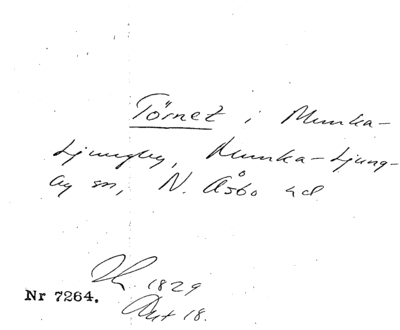 Törnet i Munka-
Ljungby, Munka-Ljung-
by sn, N. Åsbo hd
1829
Nr 7264. Akt 18.